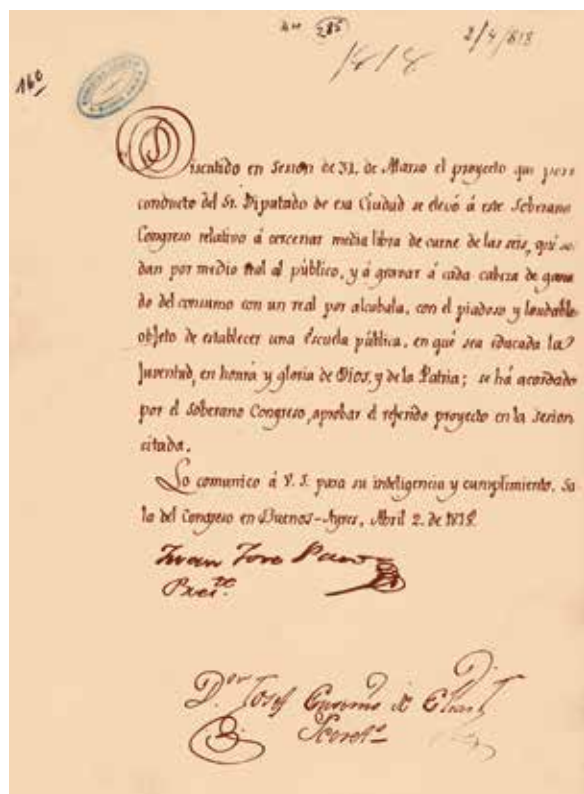 285
2/4/818
1818
160
Discutido en Sesion de 31. de Marzo el proyecto que por
conducto del Sr. Diputado de esa Ciudad se elevó á este Soberano
Congreso relativo á cercenar media libra de carne de las seis, qué se
dan por medio real al público, y á gravar á cada cabeza de gana
do del consumo con un real por alcabala, con el piadoso y laudable
objeto de establecer una Escuela pública, en qué sea educada la
Juventud, en honra y gloria de Dios, y de la Patria; se há acordado
por el Soberano Congreso, aprobar el referido proyecto en la sesion
citada.
Lo comunico á V. S. para su inteligencia y cumplimiento. Sa
la del Congreso en Buenos-Ayres, Abril 2. de 1818.
Juan Jose Paso
Presi.te
D.or Josef Eugenio de Elias
Secret.o